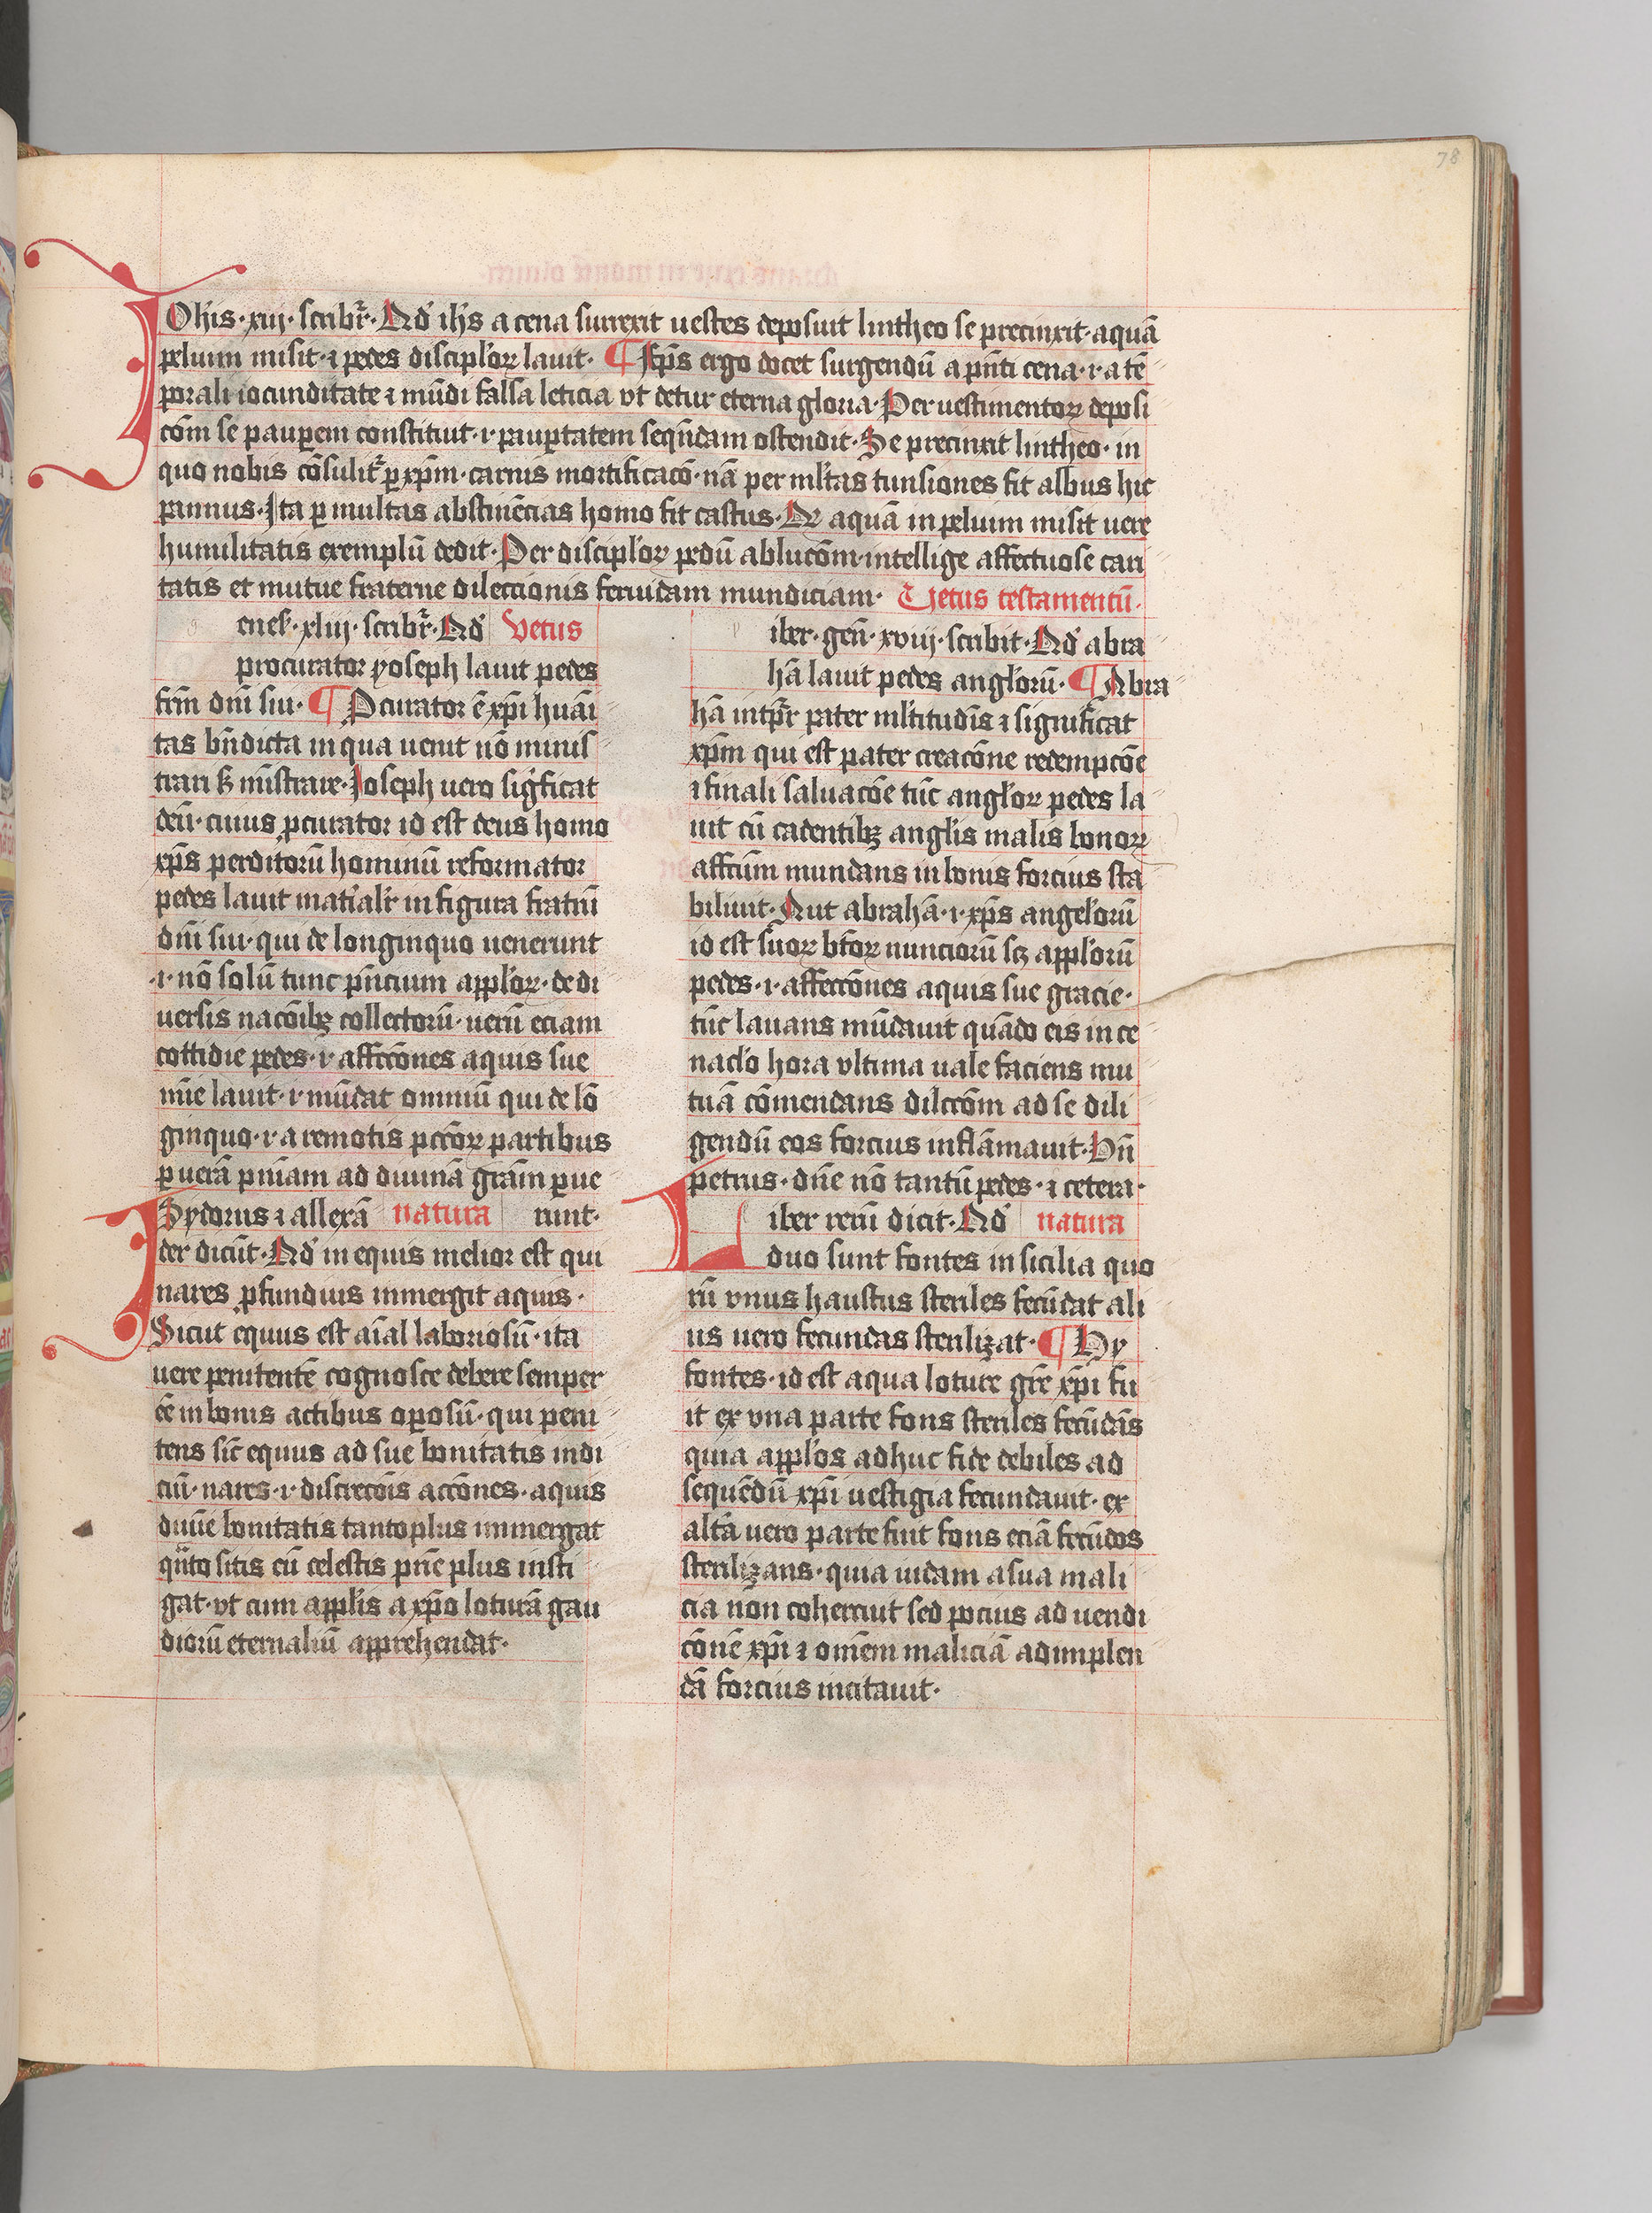 78
Joh̄is·xiij·scribit̄·Qd̄ ih̄s a cena surrexit uestes deposuit lintheo se precinxit·aquā
peluim misit·⁊ pedes discip̄loꝝ lauit· ¶ xp̄s ergo docet surgendū a pn̄ti cena·i·a tē
porali iocunditate ⁊ mūdi falsa leticia vt detur eterna gloria·Per uestimentoꝝ deposi
cōm se pauꝑem constituit·i·pauꝑtatem seqn̄dam ostendit·Se precinxit lintheo·in
quo nobis cōsulit̄ ꝑ xp̄m·carnis mortificacō·nā per ml̄tas tunsiones fit albus hic
pannus·Ita ꝑ multas abstinēcias homo fit castus· aquā in peluim misit uere
humilitatis exemplū dedit·Per discip̄loꝝ pedū ablucōm·intellige affectuose cari
tatis et mutue fraterne dilectionis feruidam mundiciam· Uetus testamentū·
enes̄·xliij·scribit̄·Qd̄ Vetus
procurator yoseph lauit pedes
fr̄m dn̄i sui· ¶ Pcurator ē xp̄i huāi
tas bn̄dicta in qua uenit nō minis
trari sꝫ mīstrare·Joseph uero sigficat
deū·cuius ꝓcurator id est deus homo
xp̄s perditorū hominū reformator
pedes lauit mat̄ialr̄ in figura fratrū
dn̄i sui·qui de longinquo uenerunt
·i·nō solū tunc pn̄cium app̄loꝝ·de di
uersis nacōibꝫ collectorū·uerū eciam
cottidie pedes·i·affectōnes aquis sue
mīe lauit·i·mūdat omniū qui de lō
ginquo·i·a remotis pc̄cōꝝ partibus
ꝑ uerā pn̄iam ad diuinā grām ꝑue
Jsydorus ⁊ allexā natura runt·
der dicūt·Qd̄ in equis melior est qui
nares ꝓfundius inmergit aquis·
Sicut equus est aīal laboriosū·ita
uere penitentē cognosce debere semper
eē in bonis actibus oꝑosū·qui peni
tens sic̄ equus ad sue bonitatis indi
ciū·nares·i·discrecōis actōnes·aquis
diuīe bonitatis tanto plus inmergat
qn̄to sitis eū celestis pr̄ie plus insti
gat·vt cum app̄lis a xp̄o loturā gau
diorū eternaliū apprehendat·
iber·gen̄·xviij·scribit·Qd̄ abra
hā lauit pedes anglorū· ¶ Abra
hā intp̄r pater ml̄titudīs ⁊ significat
xp̄m qui est pater creacōne redempcōe
⁊ finali saluacōe tūc angloꝝ pedes la
uit cū cadentibꝫ anglis malis bonoꝝ
affectū̄m mundans in bonis forcius sta
biliuit·Aut abrahā·i·xp̄s angelorū
id est suoꝝ bt̄oꝝ nunciorū sꝫ app̄lorū
pedes·i·affectōnes aquis sue gracie·
tūc lauans mūdauit quādo eis in ce
nac̄lo hora vltima uale faciens mu
tuā cōmendans dilectōm ad se dili
gendū eos forcius inflāmauit·Vn̄
petrus·dn̄e nō tantū pedes·⁊ cetera·
Liber rerū dicit·Qd̄ natura
duo sunt fontes in sicilia quo
rū vnus haustus steriles fecūdat ali
us uero fecundas sterilizat· ¶ Hy
fontes·id est aqua loture gr̄e xp̄i fu
it ex vna parte fons steriles fecūdās
quia app̄los adhuc fide debiles ad
sequēdū xp̄i uestigia fecundauit·ex
altā uero parte fuit fons eciā fecūdos
sterilizans·quia iudam a sua mali
cia non cohercuit sed pocius ad uendi
cōnē xp̄i ⁊ om̄em maliciā adimplen
dā forcius incitauit·